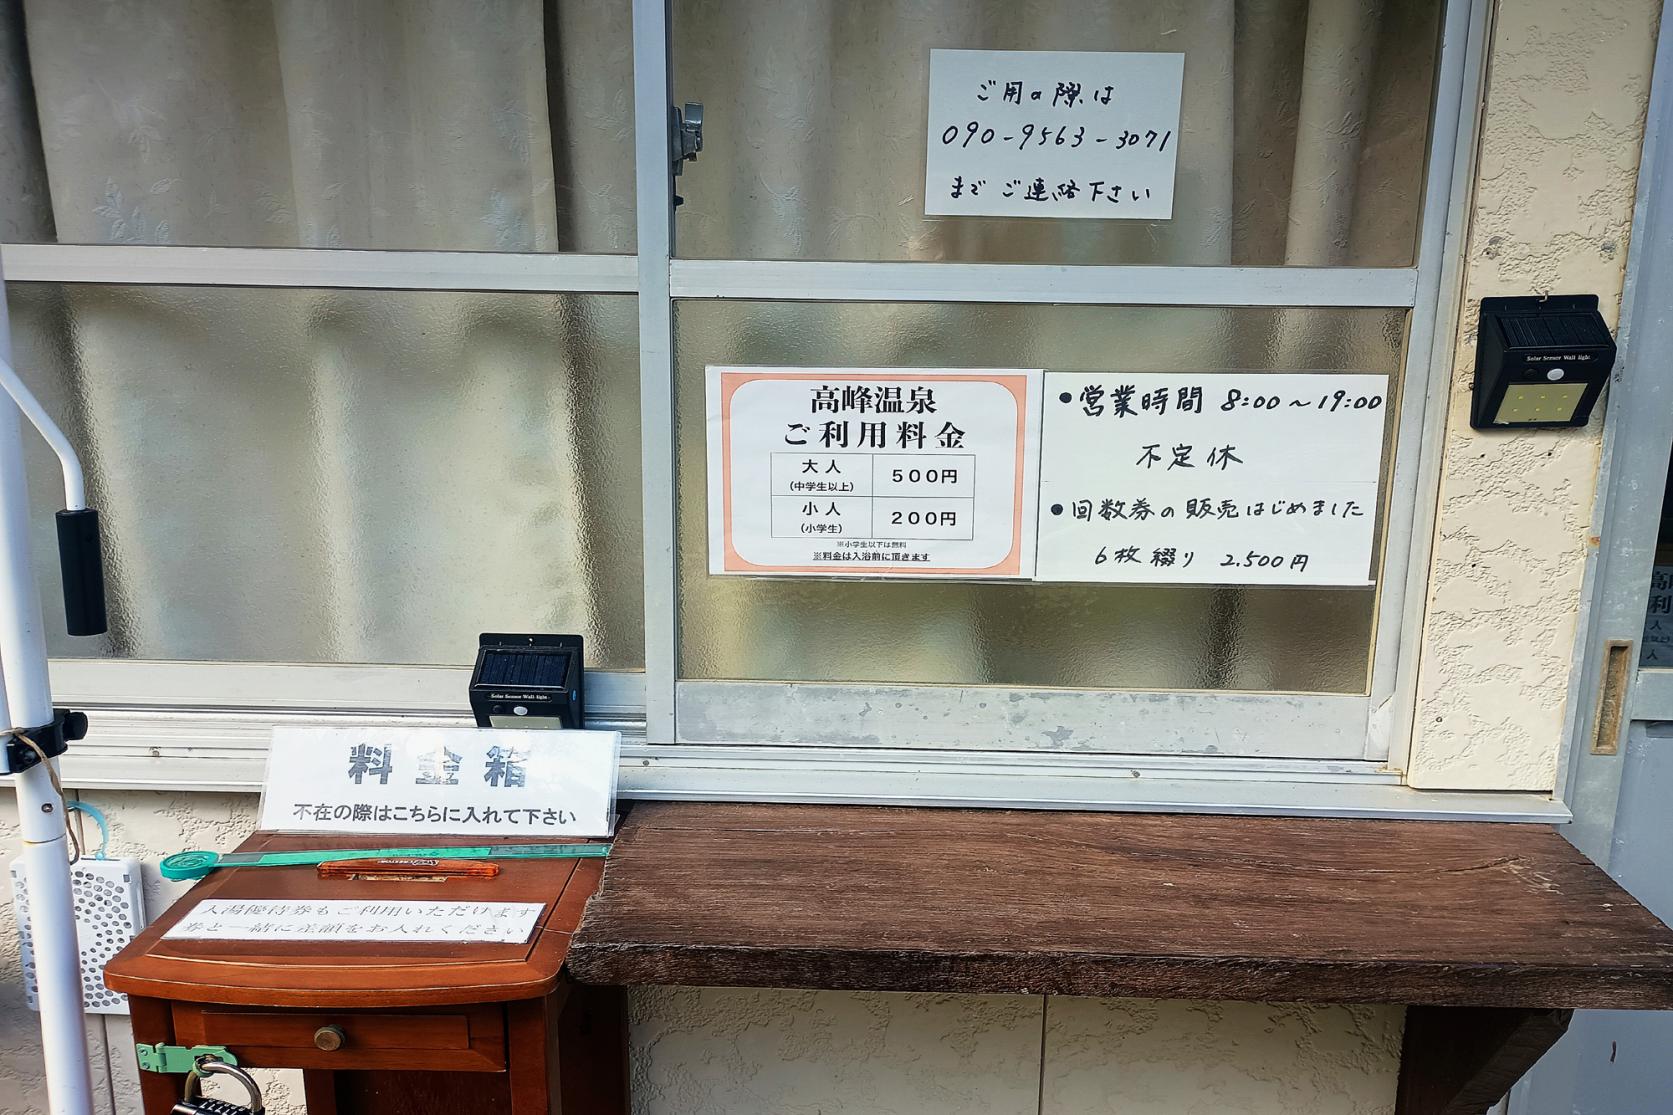 ご用の際は
090-9563-3071
まで ご連絡下さい
高峰温泉
ご利用料金
大人
(中学生以上)
500円
小人
(小学生)
200円
※小学生以下は無料
※料金は入浴前に頂きます
●営業時間 8:00~19:00
不定休
●回数券の販売はじめました
6枚綴り 2.500円
Solar Sensor Wall light
Solar Sensor Wall light
料金箱
不在の際はこちらに入れて下さい
入湯優待券もご利用いただけます
券と一緒に差額をお入れください